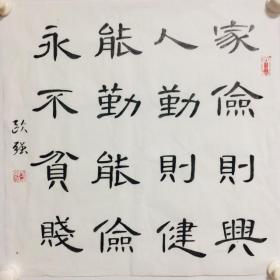 家儉則興
人勤則健
能勤能儉
永不貧賤
歐强